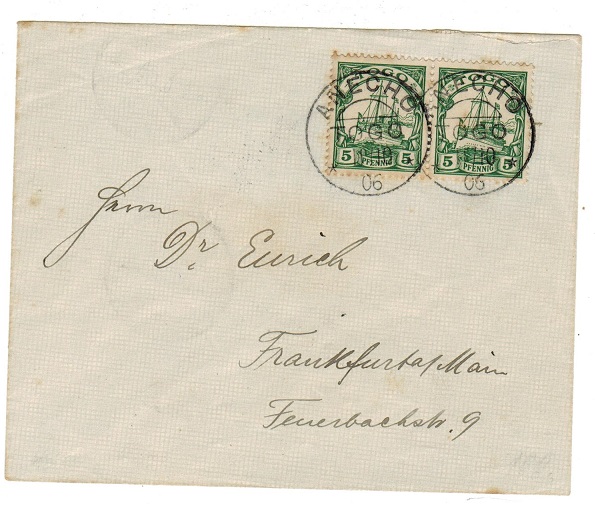 TOGO TOGO
5 PFENNIG 5 5 PFENNIG 5
ANECHO ANECHO
TOGO TOGO
06 06
Herrn
Dr. Eurich
Frankfurt a/Main
Feuerbachstr. 9